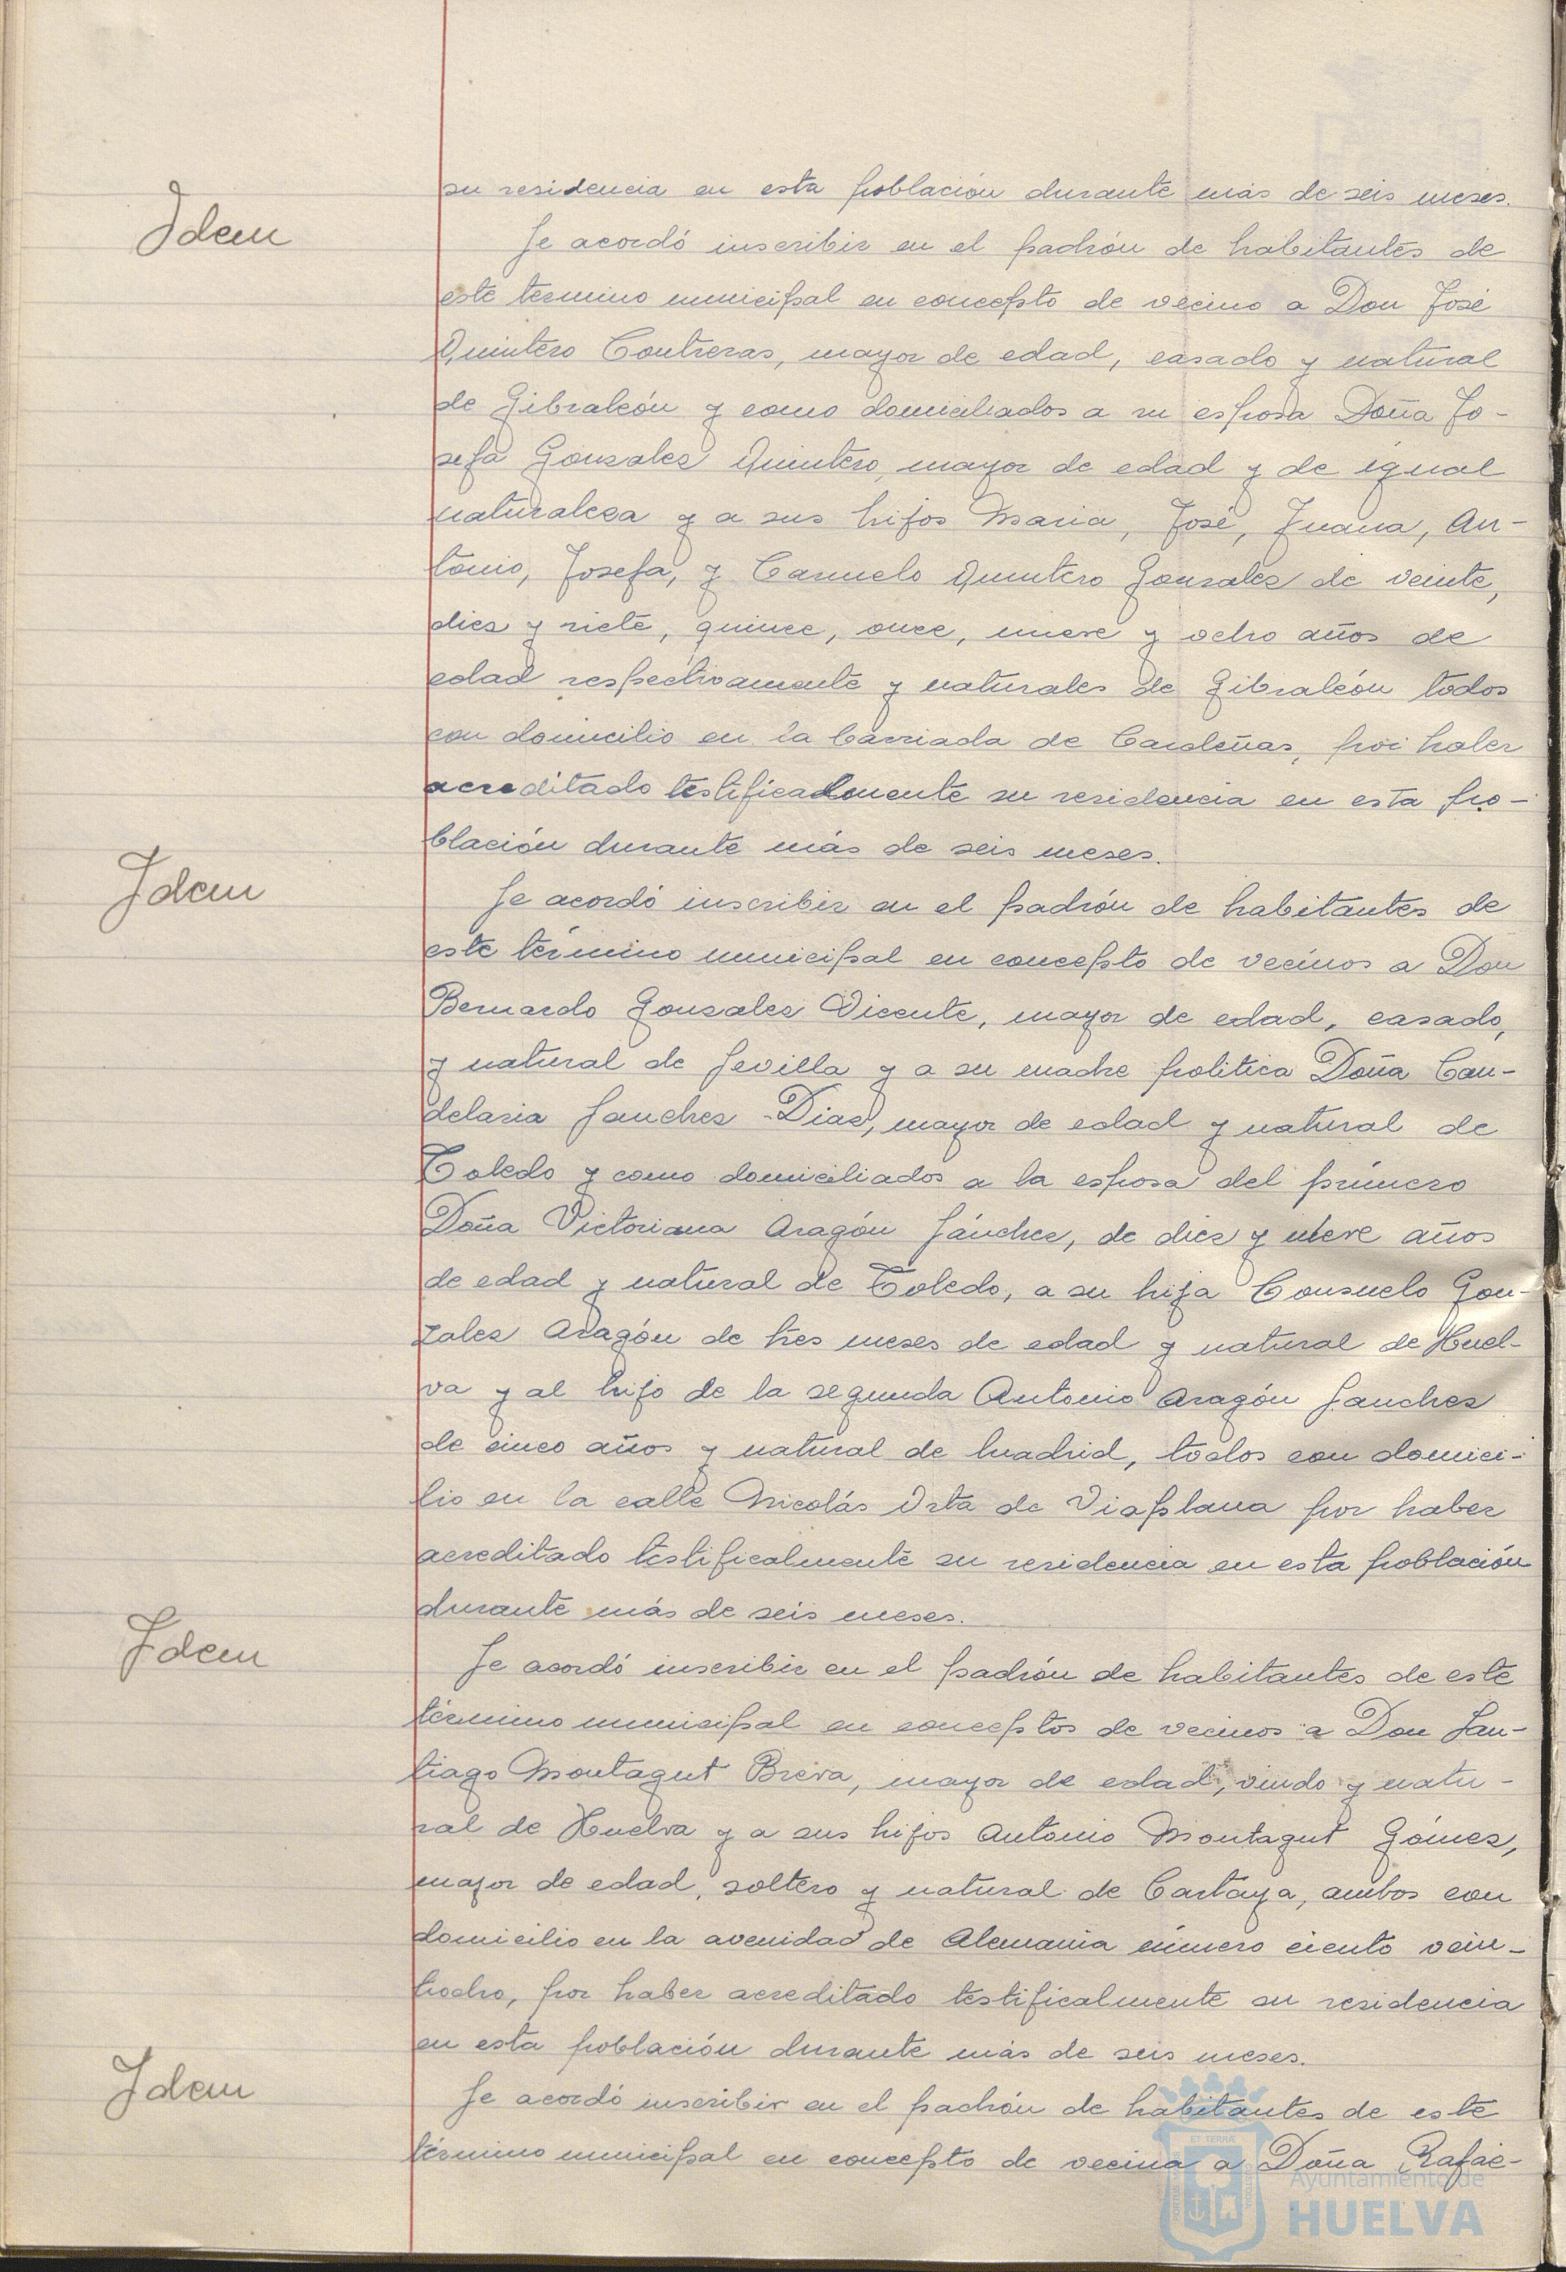 su residencia en esta población durante más de seis meses.
Idem
Se acordó inscribir en el padrón de habitantes de
este termino municipal en concepto de vecino a Don José
Quintero Contreras, mayor de edad, casado y natural
de Gibraleón y como domiciliados a su esposa Doña Jo-
sefa Gonzalez Quintero, mayor de edad y de igual
naturaleza y a sus hijos Maria, José, Juana, An-
tonio, Josefa, y Consuelo Quintero Gonzalez de veinte,
diez y siete, quince, once, nueve y ocho años de
edad respectivamente y naturales de Gibraleón todos
con domicilio en la barriada de Cardeñas, por haber
acreditado testificalmente su residencia en esta po-
blación durante más de seis meses.
Idem
Se acordó inscribir en el padrón de habitantes de
este término municipal en concepto de vecinos a Don
Bernardo Gonzalez Vicente, mayor de edad, casado,
y natural de Sevilla y a su madre politica Doña Can-
delaria Sanchez Diaz, mayor de edad y natural de
Toledo y como domiciliados a la esposa del primero
Doña Victoriana Aragón Sánchez, de diez y nueve años
de edad y natural de Toledo, a su hija Consuelo Gon-
zalez Aragón de tres meses de edad y natural de Huel-
va y al hijo de la segunda Antonio Aragón Sanchez
de cinco años y natural de Madrid, todos con domici-
lio en la calle Nicolás Orta de Viaplana por haber
acreditado testificalmente su residencia en esta población
durante más de seis meses.
Idem
Se acordó inscribir en el padrón de habitantes de este
término municipal en conceptos de vecinos a Don San-
tiago Montagut Breva, mayor de edad, viudo y natu-
ral de Huelva y a sus hijos Antonio Montagut Gómez,
mayor de edad, soltero y natural de Cartaya, ambos con
domicilio en la avenida de Alemania número ciento vein-
tiocho, por haber acreditado testificalmente su residencia
en esta población durante más de seis meses.
Idem
Se acordó inscribir en el padrón de habitantes de este
término municipal en concepto de vecina a Doña Rafae-
Ayuntamiento de
HUELVA